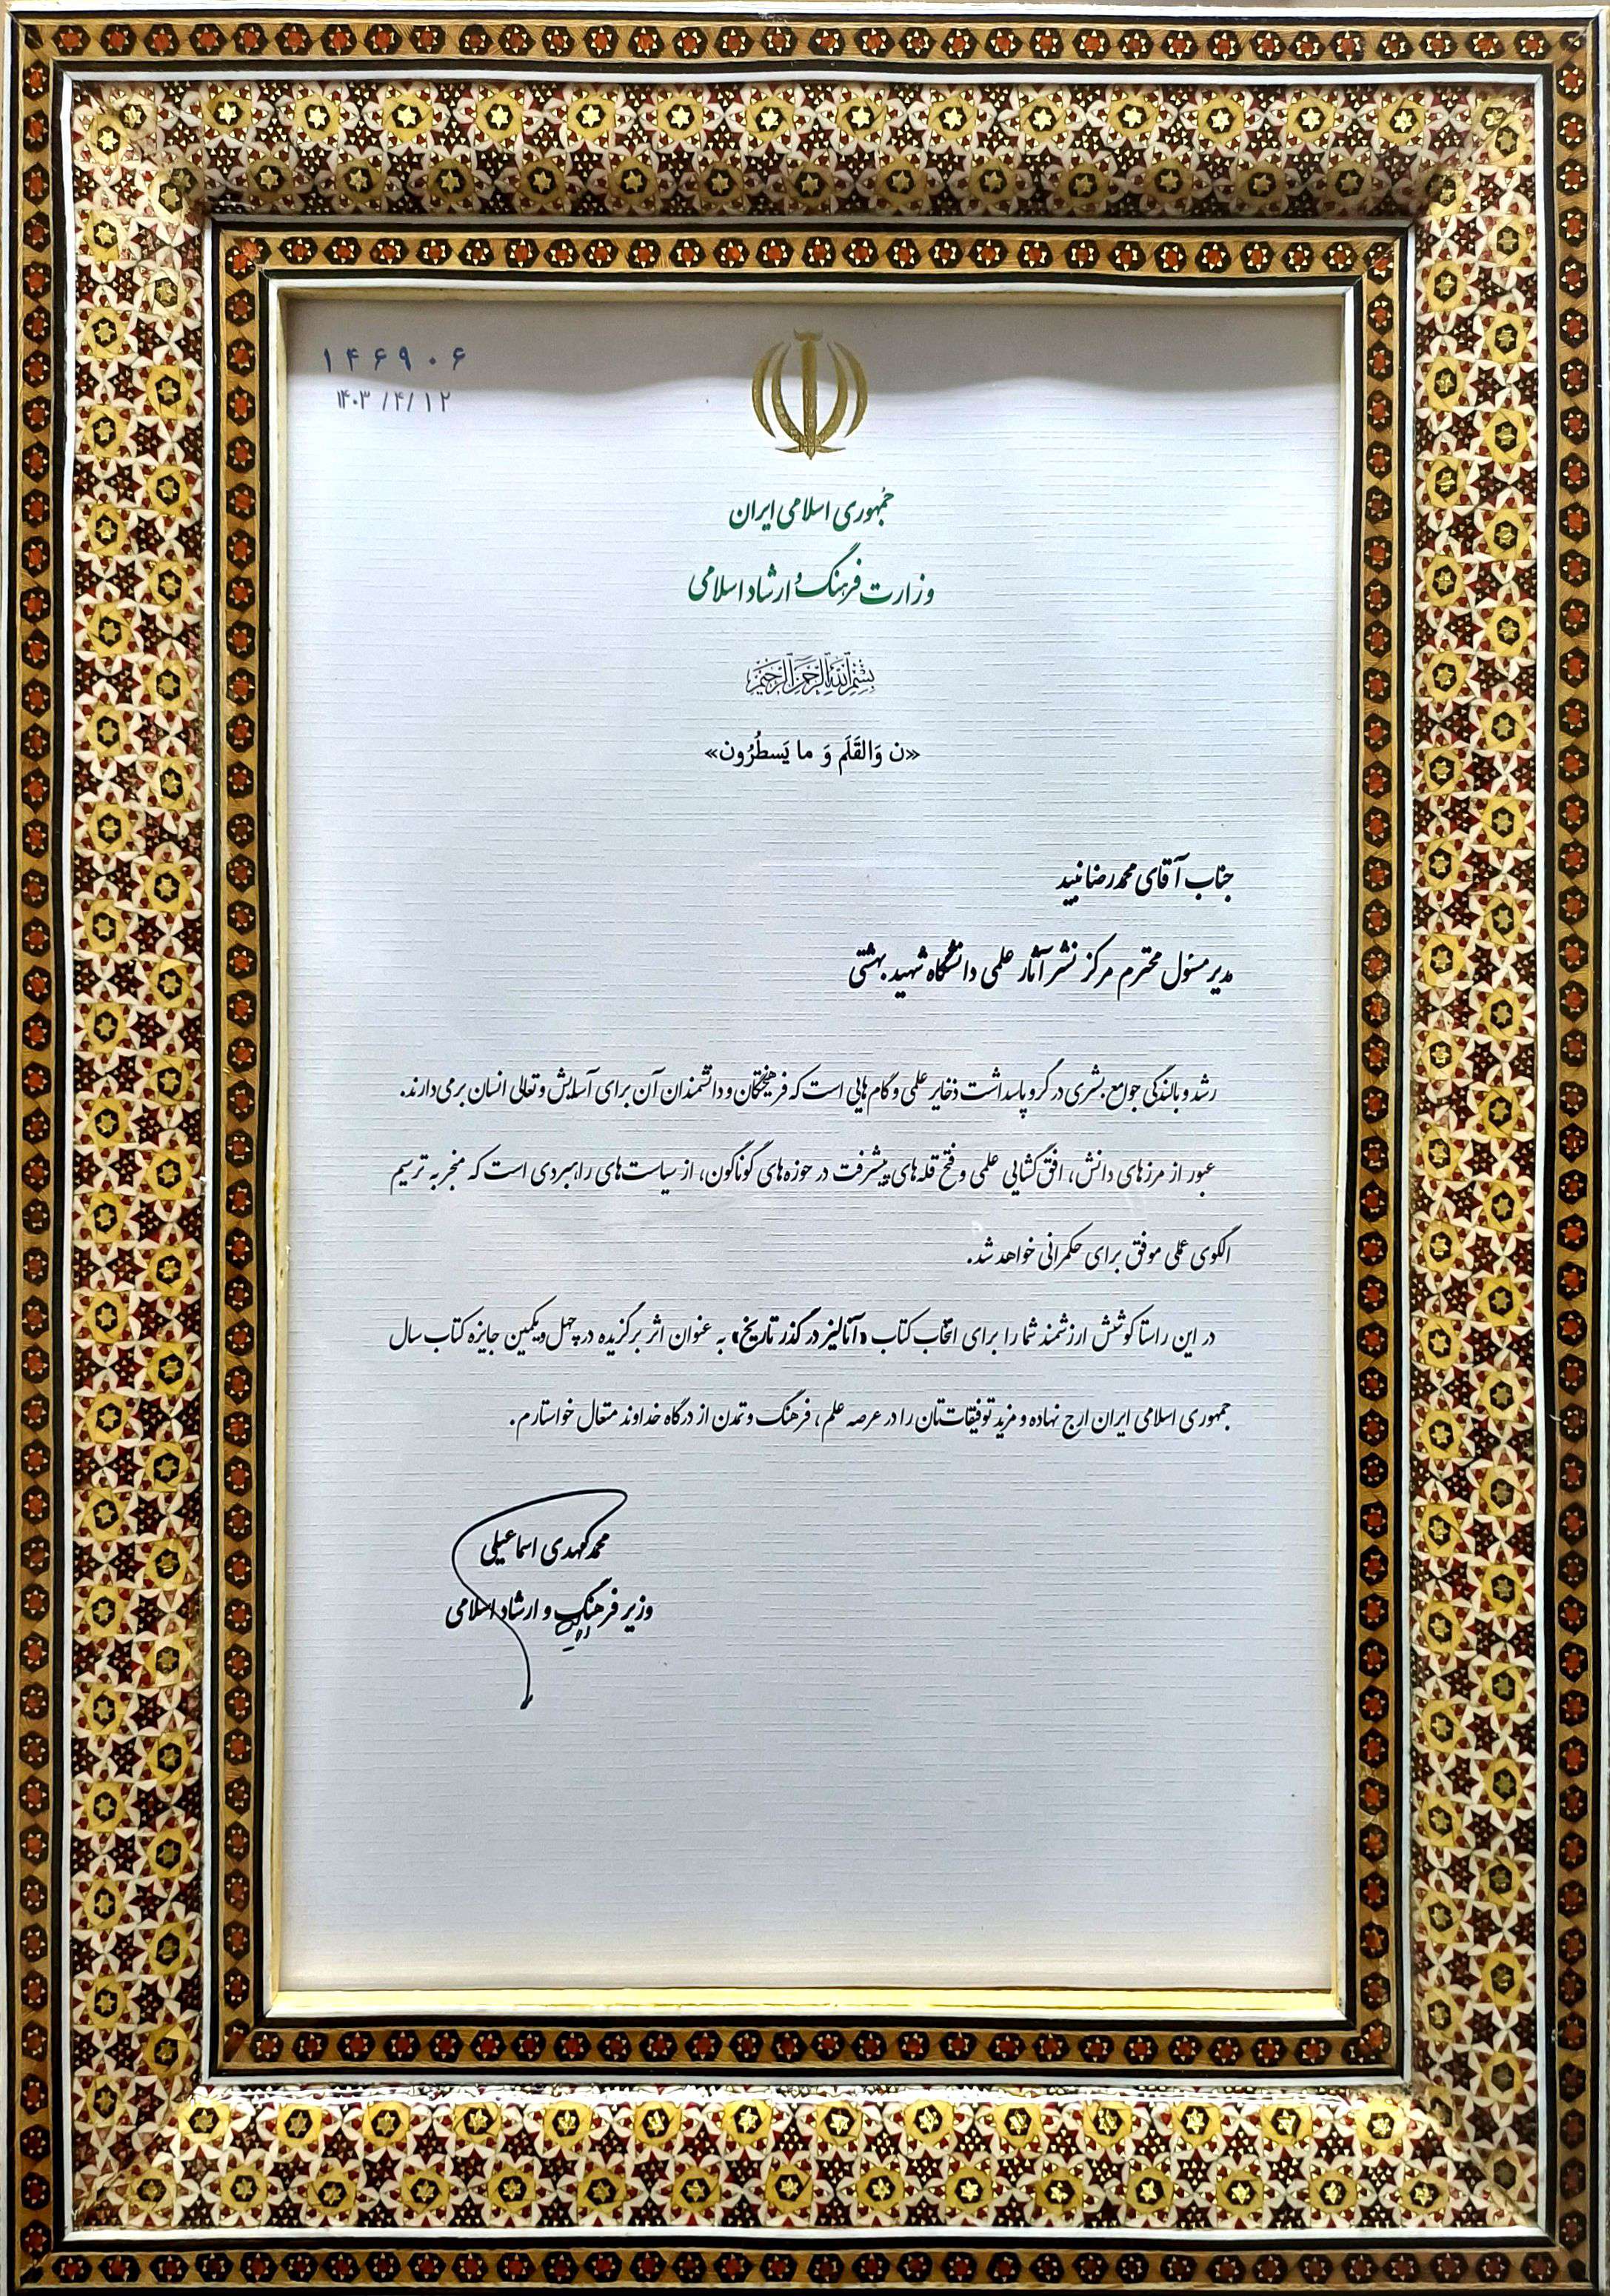 ۱۴۶۹۰۶
۱۴۰۳/۴/۱۲
جمهوری اسلامی ایران
وزارت فرهنگ و ارشاد اسلامی
بسم الله الرحمن الرحیم
«ن وَالقَلَم وَ ما یَسطُرُون»
جناب آقای محمدرضا نبید
مدیر مسئول محترم مرکز نشر آثار علمی دانشگاه شهید بهشتی
رشد و بالندگی جوامع بشری در گرو پاسداشت ذخایر علمی و گام‌هایی است که فرهیختگان و دانشمندان آن برای آسایش و تعالی انسان برمی‌دارند.
عبور از مرزهای دانش، افق گشایی علمی و فتح قله‌های پیشرفت در حوزه‌های گوناگون، از سیاست‌های راهبردی است که منجر به ترسیم
الگوی عملی موفق برای حکمرانی خواهد شد.
در این راستا کوشش ارزشمند شما را برای انتخاب کتاب «آنالیز در گذر تاریخ» به عنوان اثر برگزیده در چهل و یکمین جایزه کتاب سال
جمهوری اسلامی ایران ارج نهاده و مزید توفیقات‌تان را در عرصه علم، فرهنگ و تمدن از درگاه خداوند متعال خواستارم.
محمدمهدی اسماعیلی
وزیر فرهنگ و ارشاد اسلامی